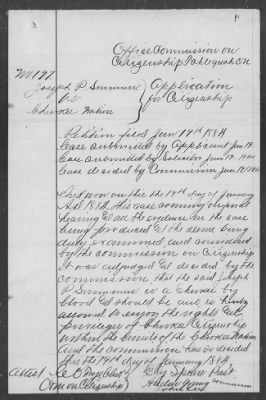 Office Commission on
Citizenship Tahlequah CN
No 177
Joseph P Simmons
vs
Cherokee Nation
Application
for Citizenship
Petition filed Jan 19th 1884
Case submitted by Applicant Jan 19
Case submitted by Solicitor Jan 19 1884
Case decided by Commission Jan 19 1884
And now on this the 19th day of January
AD 1884 this case coming up for
hearing & all the evidence in the case
being produced & the same being
duly examined, and considered
by the commission on Citizenship
it was adjudged & decided by the
commission that the said Joseph
P Simmons is a Cherokee by
blood & should be and is hereby
to enjoy the rights &
privileges of Cherokee Citizenship
within the limits of the Cherokee Nation
and the commission has so decided
this the 19th day of January 1884
Attest
Com on Citizenship